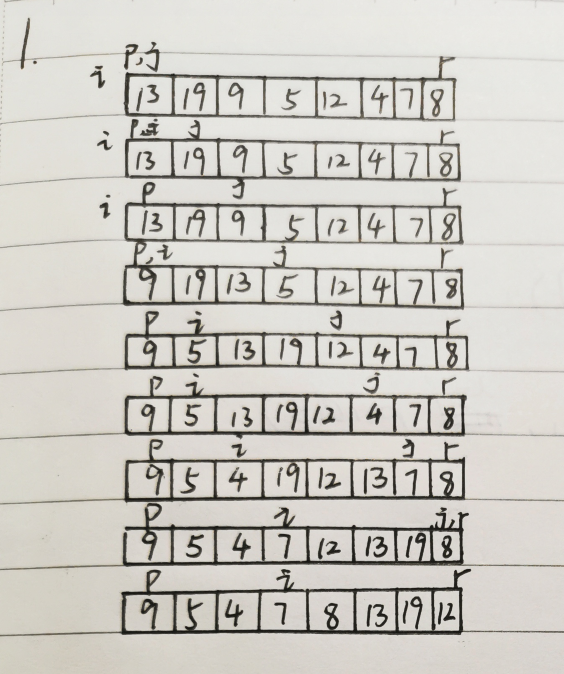 1.
p,j r
i 13 19 9 5 12 4 7 8
j r
i 13 19 9 5 12 4 7 8
p j r
i 13 19 9 5 12 4 7 8
p,i j r
9 19 13 5 12 4 7 8
p i j r
9 5 13 19 12 4 7 8
p i j r
9 5 13 19 12 4 7 8
p i j r
9 5 4 19 12 13 7 8
p i j,r
9 5 4 7 12 13 19 8
p i r
9 5 4 7 8 13 19 12